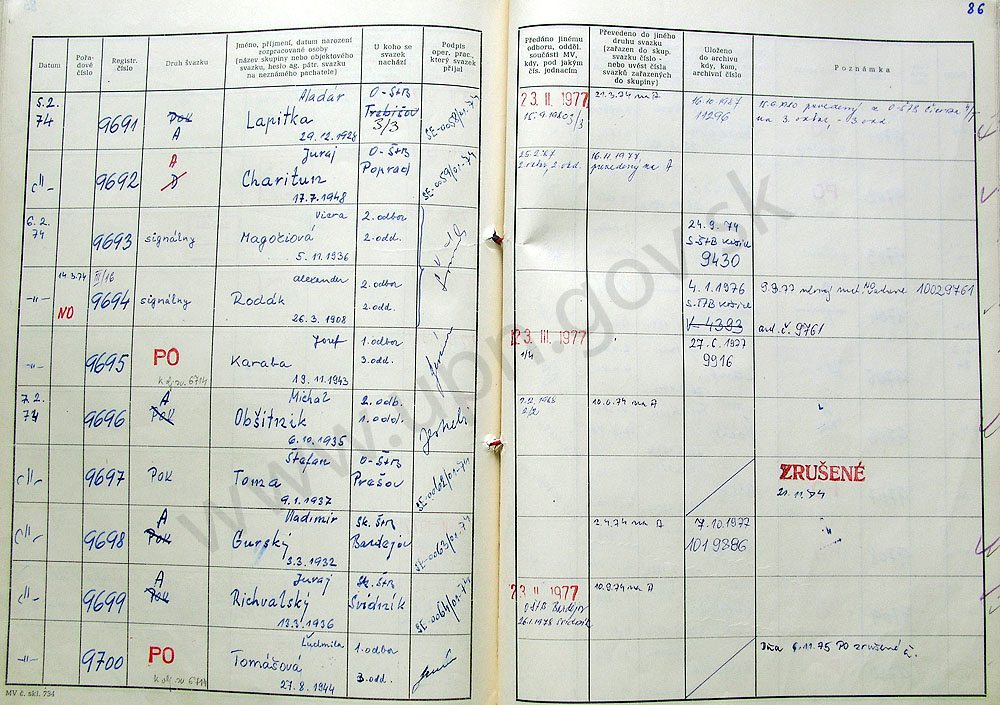 86
Datum
Pořa-
dové
číslo
Registr.
číslo
Druh svazku
Jméno, příjmení, datum narození
rozpracované osoby
(název skupiny nebo objektového
svazku, heslo ag. pátr. svazku
na neznámého pachatele)
U koho se
svazek
nachází
Podpis
oper. prac.,
který svazek
přijal
Předáno jinému
odboru, odděl.
součásti MV,
kdy, pod jakým
čís. jednacím
Převedeno do jiného
druhu svazku
(zařazen do skup.
svazku číslo -
nebo uvést čísla
svazků zařazených
do skupiny)
Uloženo
do archivu
kdy, kam,
archivní číslo
Poznámka
5.2.
74
9691
PoK
A
Aladár
Lapitka
29.12.1928
O-ŠtB
Trebišov
3/3
SE-0058/01-74
23. II. 1977
21.3.74 na A
16.10.1987
11296
-"-
9692
A
D
Juraj
Charitun
17.7.1948
O-ŠtB
Poprad
SE-0059/01-74
16.11.1977
prevedený na A
6.2.
74
9693
signálny
Viera
Magotiová
5.11.1936
2.odbor
2.odd.
24.9.74
S-ŠtB Košice
9430
-"-
14.3.74
NO
III/16
9694
signálny
Alexander
Rodák
26.3.1908
2.odbor
2.odd.
4.1.1976
S-ŠTB Košice
V-4393
10029761
arch.č. 9761
-"-
9695
PO
k obj. zv. 6714
Jozef
Karaba
19.11.1943
1.odbor
3.odd.
23. III. 1977
1/4
27.6.1977
9916
7.2.
74
9696
A
PoK
Michal
Obšitník
6.10.1935
2.odb.
1.odd.
2/2
10.6.74 na A
-"-
9697
PoK
Štefan
Toma
9.1.1937
O-ŠtB
Prešov
SE-0062/01-74
ZRUŠENÉ
21.11.74
-"-
9698
A
PoK
Vladimír
Gurský
3.3.1932
Sk.ŠtB
Bardejov
SE-0063/01-74
2.4.74 na A
7.10.1977
1019886
-"-
9699
A
PoK
Juraj
Richvalský
13.3.1936
Sk.ŠtB
Svidník
SE-0064/01-74
23. II. 1977
OŠtB Bardejov
26.1.1978 Svidník
10.9.74 na A
-"-
9700
PO
k obj. zv. 6714
Ľudmila
Tomášová
27.8.1944
1.odbor
3.odd.
Dňa 6.11.75 PO zrušené
MV č. skl. 734
www.upn.gov.sk